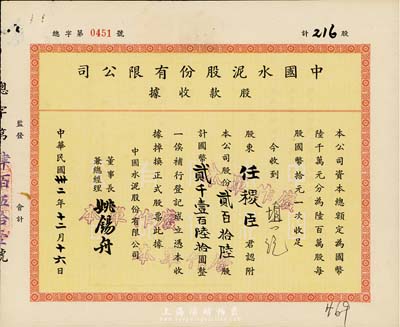 總字第 0451 號
計 216 股
中國水泥股份有限公司
股款收據
本公司資本總額定為國幣
陸千萬元分為陸百萬股每
股國幣拾元一次收足
今收到
股東 任稷臣 君認附
本公司股份 貳百拾陸 股
計國幣 貳千壹百陸拾 圓整
一俟補行登記成立憑本收
據掉換正式股票此據
中國水泥股份有限公司
董事長
兼總經理 姚錫舟
中華民國 卅二 年 十二 月 十六 日
監發
會計
總字第 肆百伍拾壹 號
469